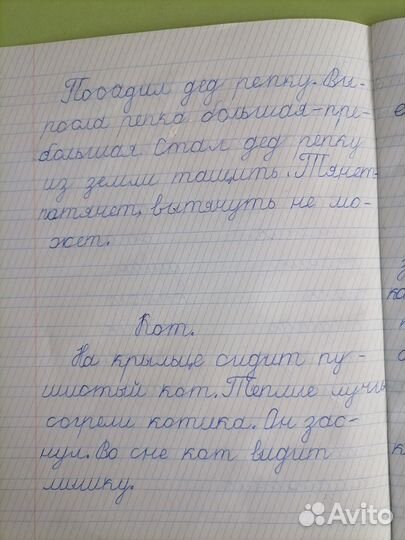 Посадил дед репку. Вы-
росла репка большая-пре-
большая. Стал дед репку
из земли тащить. Тянет-
потянет, вытянуть не мо-
жет.
Кот.
На крыльце сидит пу-
шистый кот. Теплые лучи
согрели котика. Он зас-
нул. Во сне кот видит
мышку.
Avito